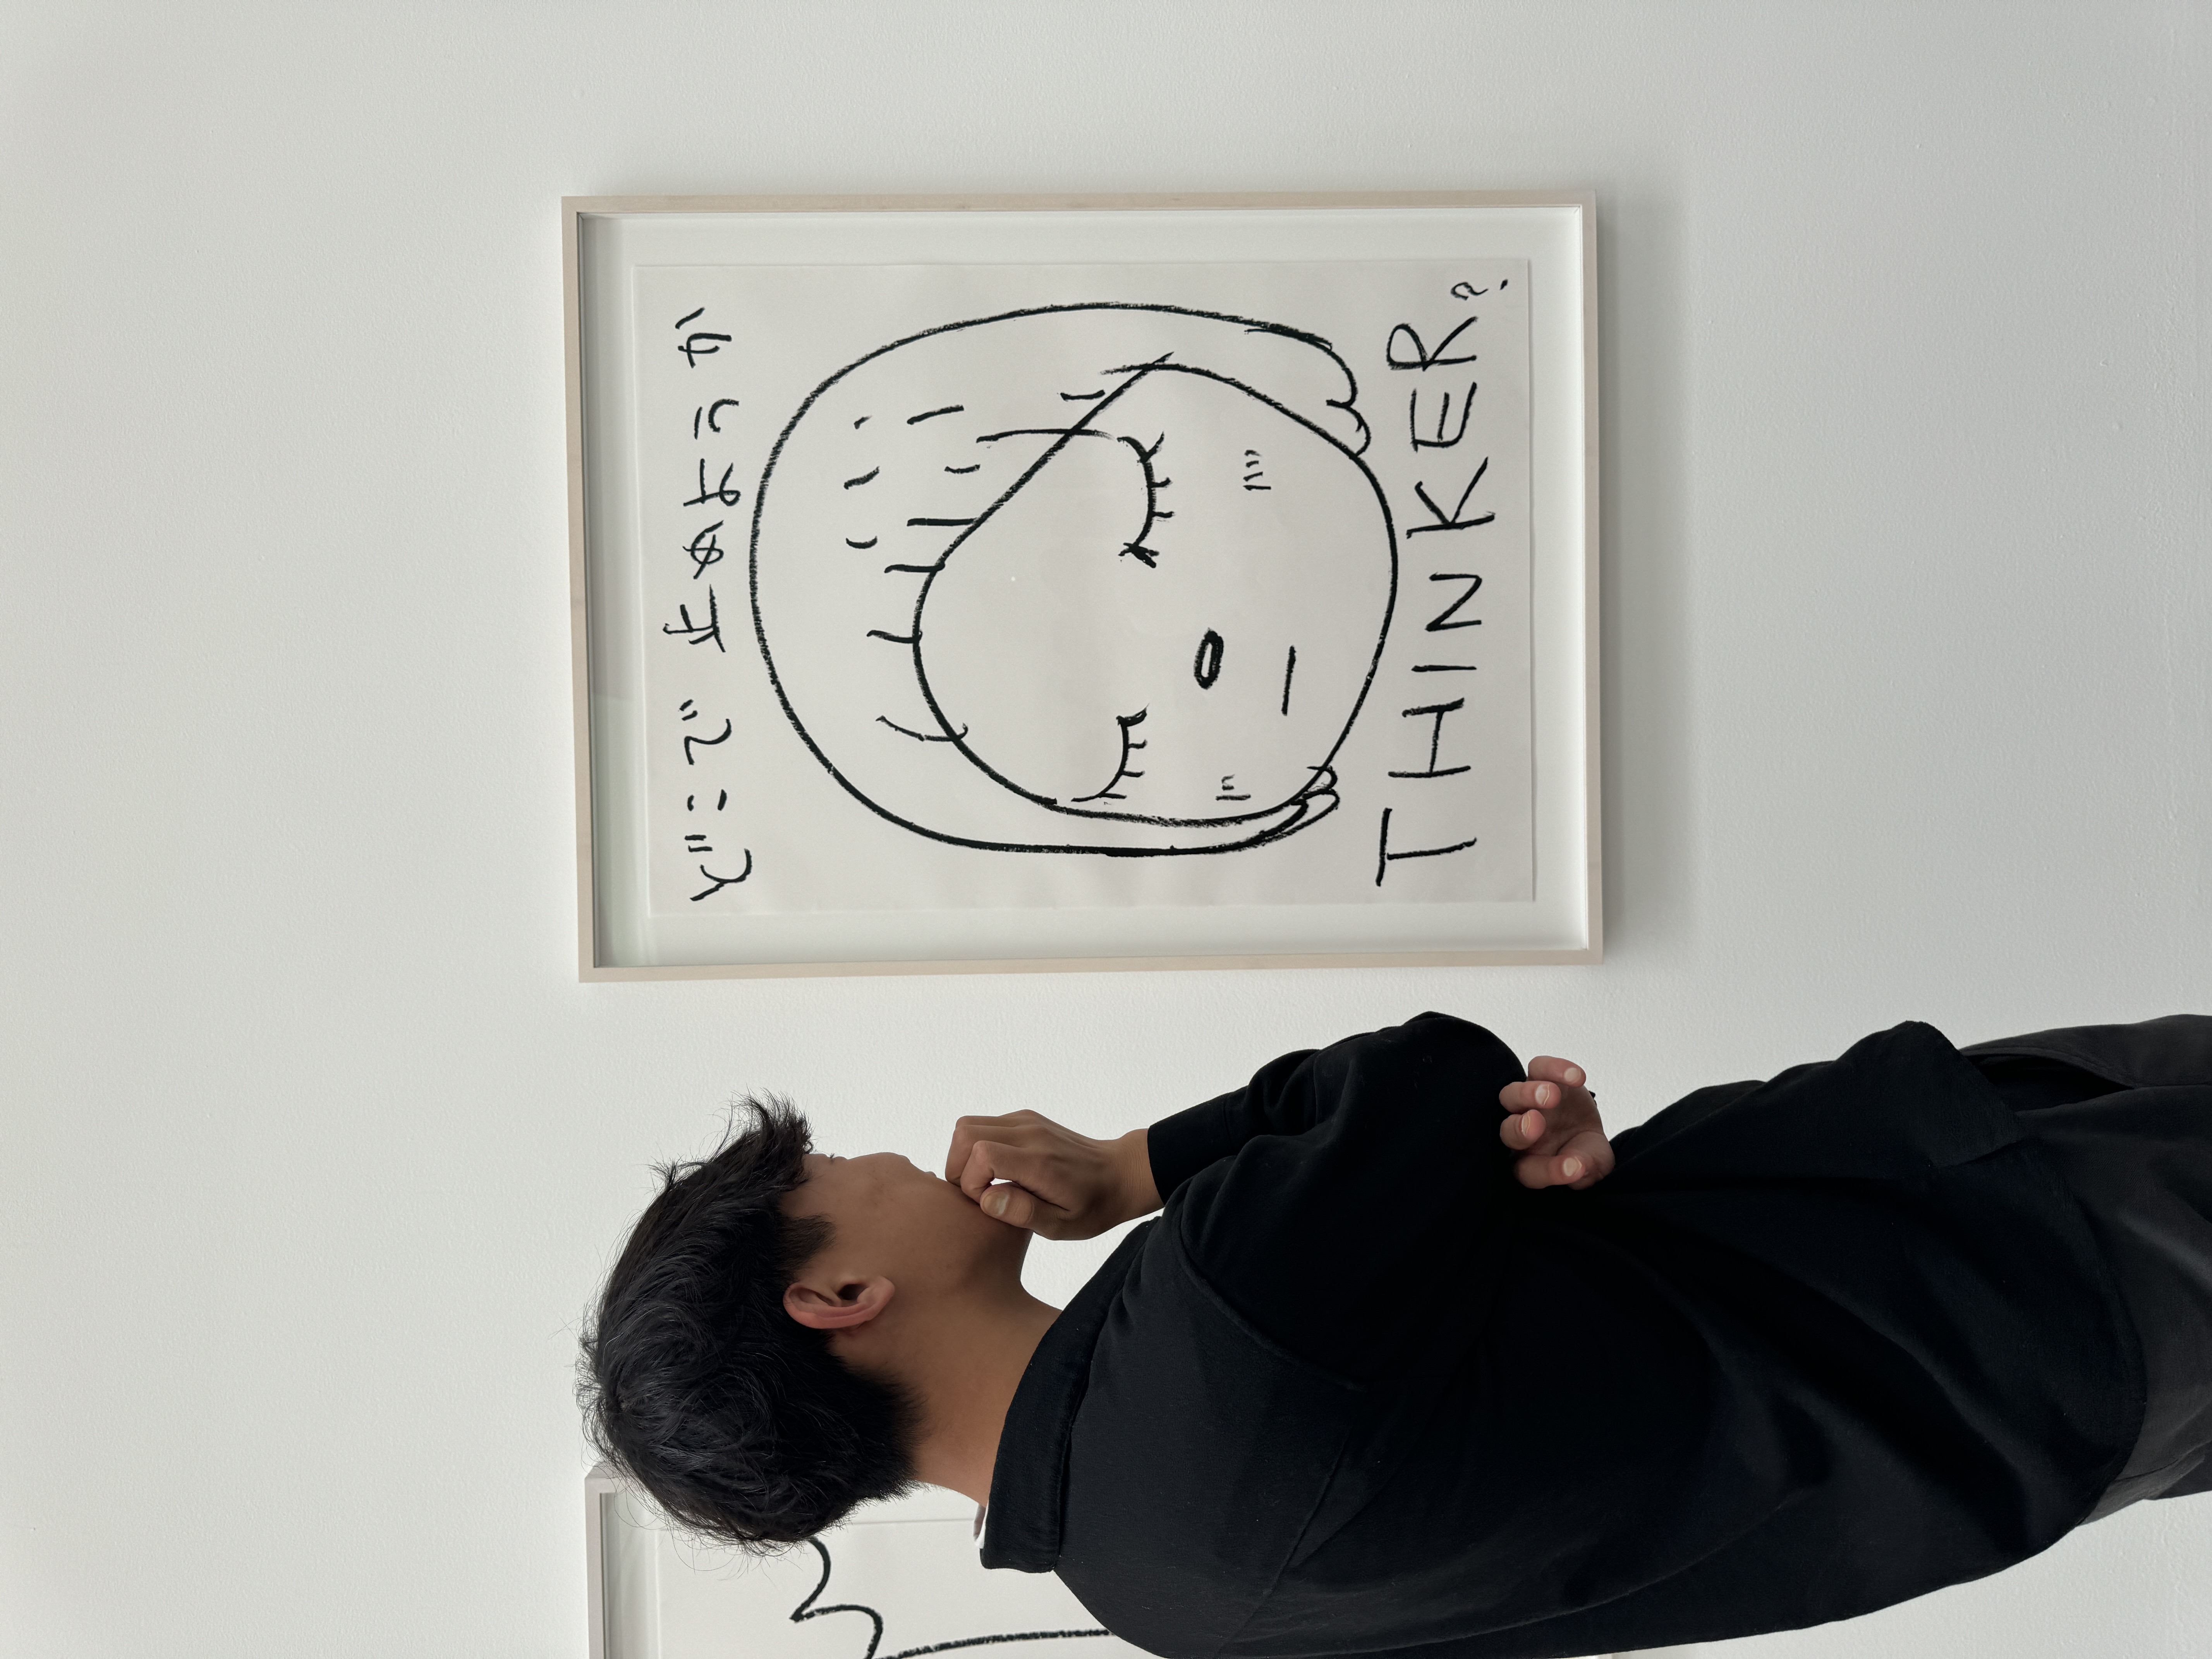 どこで 止めようか
THINKER?